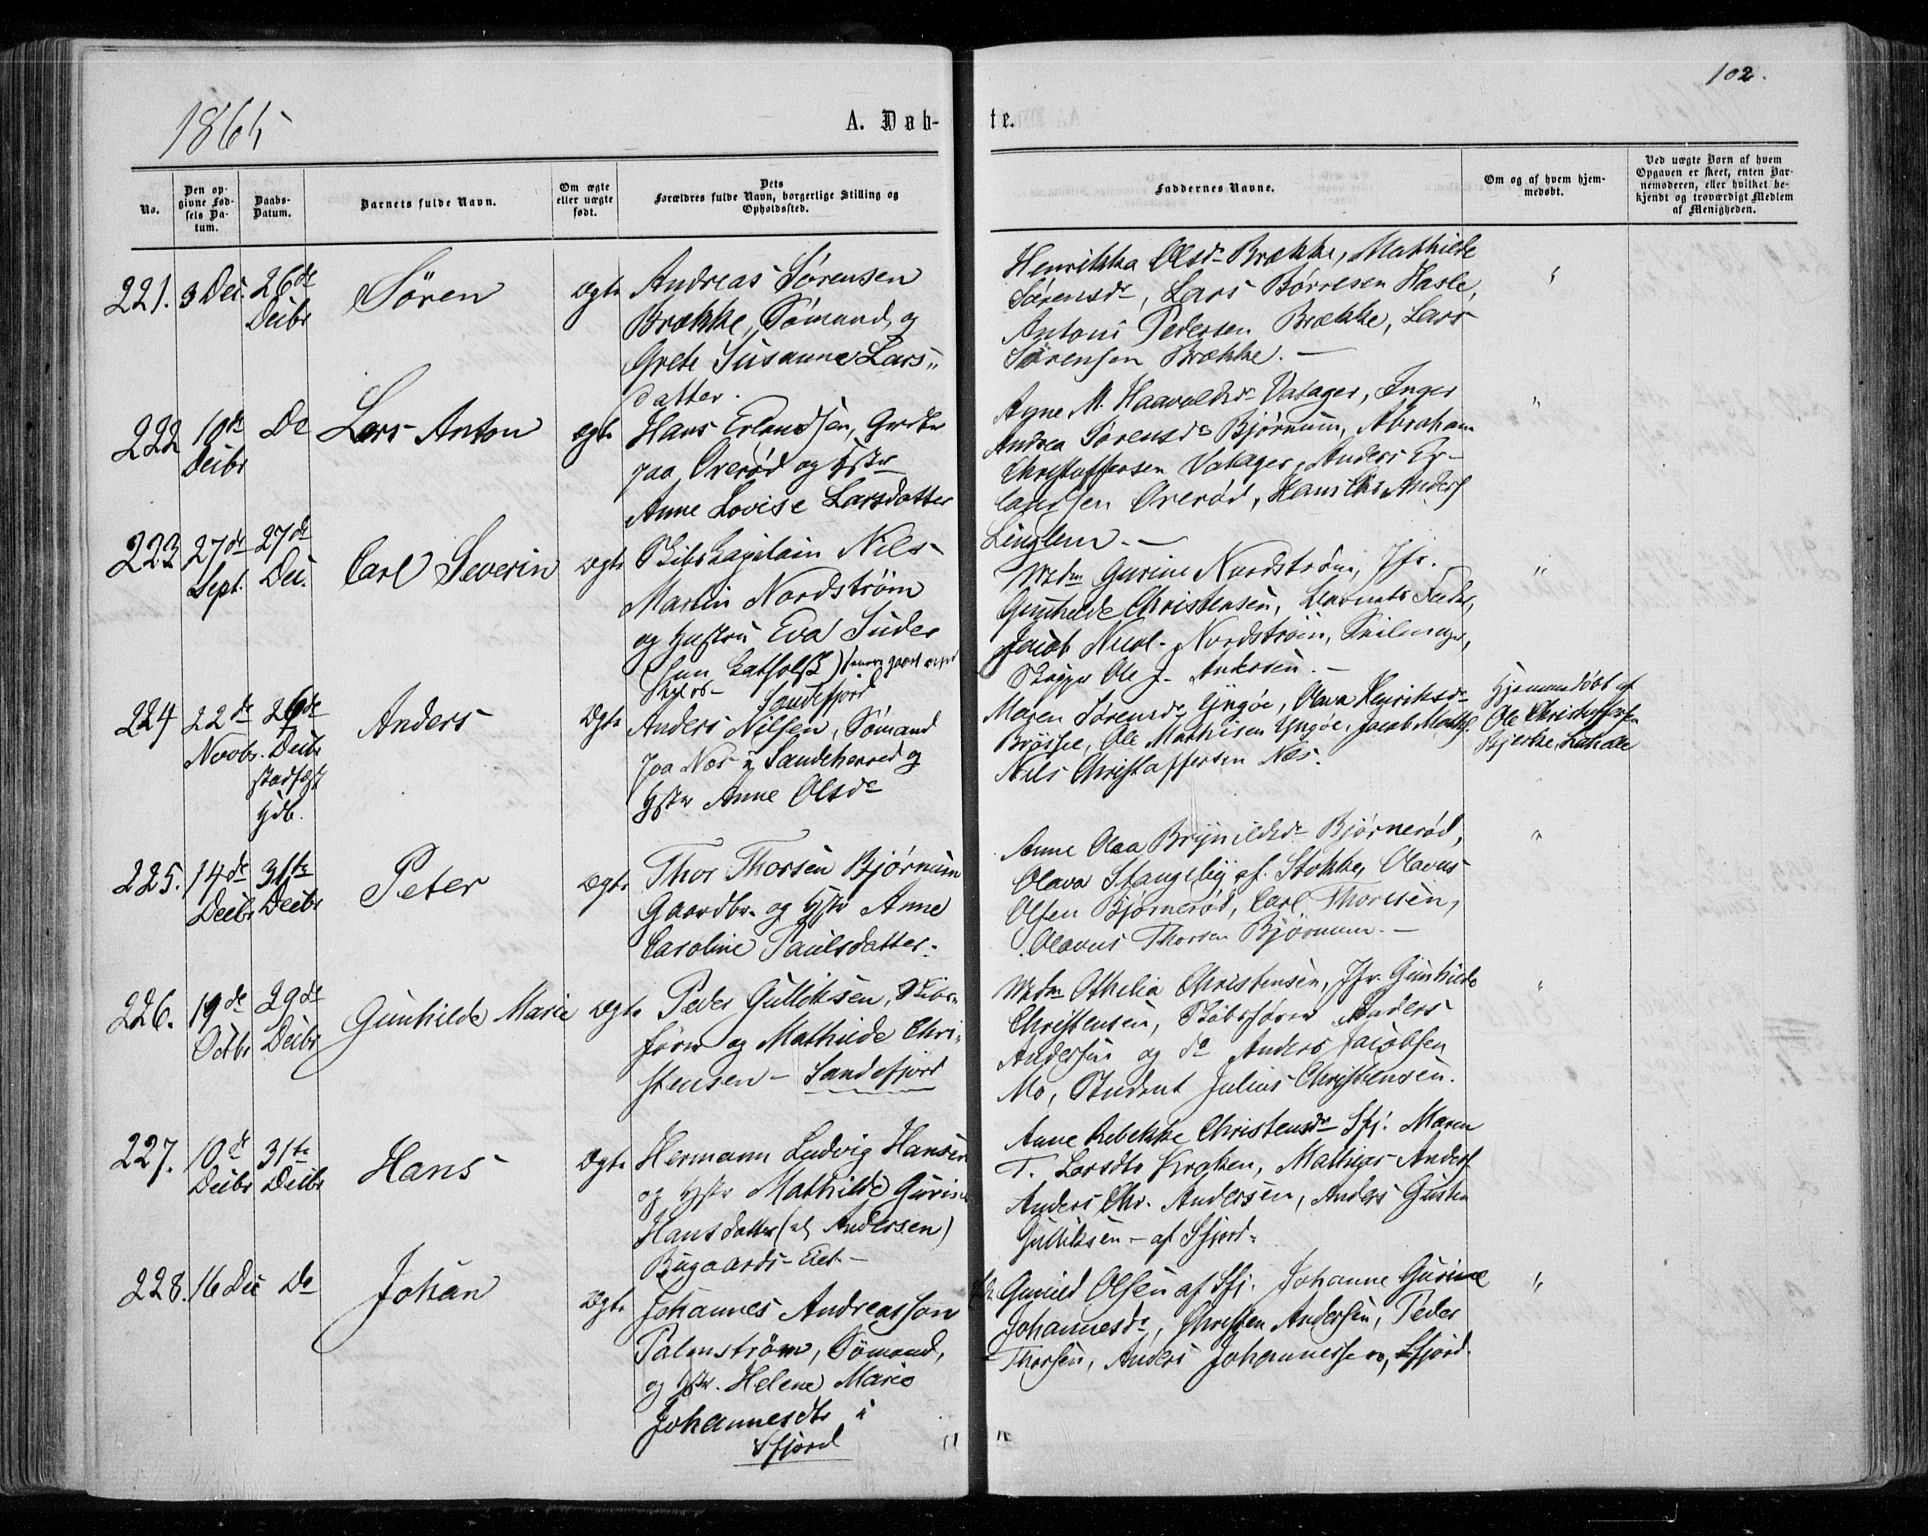 102.
1865
A. Døb-
te.
No.
Den op-
givne Fød-
sels Da-
tum.
Daabs-
Datum.
Barnets fulde Navn.
Om ægte
eller uægte
født.
Dets
Forældres fulde Navn, borgerlige Stilling og
Opholdssted.
Faddernes Navne.
Om og af hvem hjem-
medøbt.
Ved uægte Børn af hvem
Opgaven er skeet, enten Bar-
nemoderen, eller hvilket be-
kjendt og troværdigt Medlem
af Menigheden.
221. 3 Dec. 26de
Decbr
Søren
ægte
Andreas Sørensen
Brække, Sømand, og
Grete Susanne Lars-
datter.
Henrikka Olsdr Brække, Mathilde
Sørensdr, Lars Børresen Hasle,
Antoni Pedersen Brække, Lars
Sørensen Brække. —
"
222 10de
Decbr
Do
Lars Anton
ægte
Hans Erlandsen, Grdbr
paa Orerød og Hstr
Anne Lovise Larsdatter
M. Haavaldsdr Vatager, Inger
Andrea Sørensdr Bjørnum, Abraham
Christoffersen Vatager, Anders Er-
landsen Orerød, Hans Chr Anders
"
223 27de
Sept.
27de
Dec.
Carl Severin
ægte
Skibskapitain Nils
Martin Nordstrøm
og Hustru Eva Suder
(hun katholsk)
Sandefjord
Mdm Gurine Nordstrøm, Jfr.
Gunhilde Christensen, Barnets Fader,
Jacob Nicol. Nordstrøm, Seilmager,
Skipper Ole J. Andersen. —
"
224 22de
Novbr.
26de
Decbr
stadfæst
Hdb.
Anders
ægte
Anders Nilsen, Sømand
paa Nes i Sandeherred og
Hstr Anne Olsdr
Maren Sørensdr Yngøe, Olava Henriksdr
Ole Mathisen Yngøe, Jacob Maths.
Nils Christoffersen Nes.
Hjemmedøbt af
Ole Christoffersen
Bjerke
225. 14de
Decbr
31te
Decbr
Peter
ægte
Thor Thorsen Bjørnum
Gaardbr. og Hstr Anne
Caroline Paulsdatter.
Anne Olea Brynildsdr Bjørnerød,
Olava Stangeby af Stokke, Olavus
Olsen Bjørnerød, Carl Thorsen,
Olavus Thorsen Bjørnum. —
"
226. 19de
Octbr
29de
Decbr
Gunhilde Marie
ægte
Peder Gulliksen, Skibs-
fører og Mathilde Chri-
stensen — Sandefjord
Mdm Othelia Christensen, Jfr. Gunhilde
Christensen, Skibsfører Anders
Andersen og do Anders Jacobsen
Mo, Student Julius Christensen.
"
227. 10de
Decbr
31te
Decbr
Hans
ægte
Hermann Ludvig Hansen
og Hstr Mathilde Gurine
Hansdatter (el Andersen)
Bugaards-Eiet —
Anne Rebekke Christensdr Sfj. Maren
T. Larsdtr Kraken, Mathias Anders
Anders Chr. Andersen, Anders Gusten
Gulliksen — af Sfjord.
228. 16 Dec Do
Johan
ægte
Johannes Andreassen
Palmstrøm, Sømand,
og Hstr. Helene Marie
Johannesdtr i
Sfjord
Gunild Olsen af Sfj. Johanne Gurine
Johannesdr, Christen Andersen, Peder
Thorsen, Anders Johannessen, Sfjord.
"